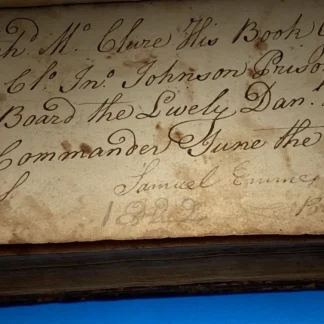 hd. Mc. Clure His Book
Clo. Jno. Johnson Priso
Board the Lively Dan.
Commander June the
Samuel Emmes
1822